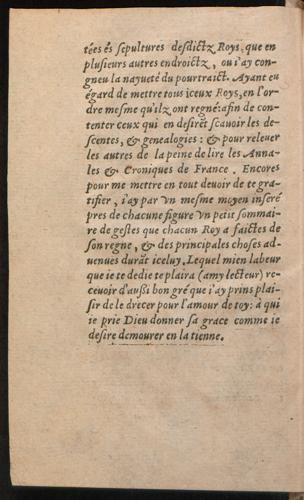 tées és sepultures desdictz Roys, que en
plusieurs autres endroictz, ou i'ay con
gneu la nayueté du pourtraict. Ayant eu
égard de mettre tous iceux Roys, en l'or-
dre mesme qu'ilz ont regné: afin de con-
tenter ceux qui en desirẽt scauoir les de-
scentes, & genealogies: & pour releuer
les autres de la peine de lire les Anna-
les & Croniques de France. Encores
pour me mettre en tout deuoir de te gra-
tifier, i'ay par vn mesme moyen inseré
pres de chacune figure vn petit sommai-
re de gestes que chacun Roy a faictes de
son regne, & des principales choses ad-
uenues durãt iceluy. Lequel mien labeur
que ie te dedie te plaira (amy lecteur) re-
ceuoir d'außi bon gré que i'ay prins plai-
sir de le drecer pour l'amour de toy: à qui
ie prie Dieu donner sa grace comme ie
desire demourer en la tienne.